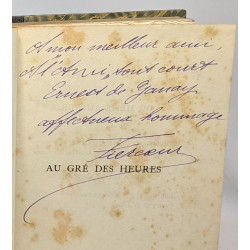 A mon meilleur ami,
A l'Ami, tout court
Ernest de Ganay
affectueux hommage
AU GRÉ DES HEURES